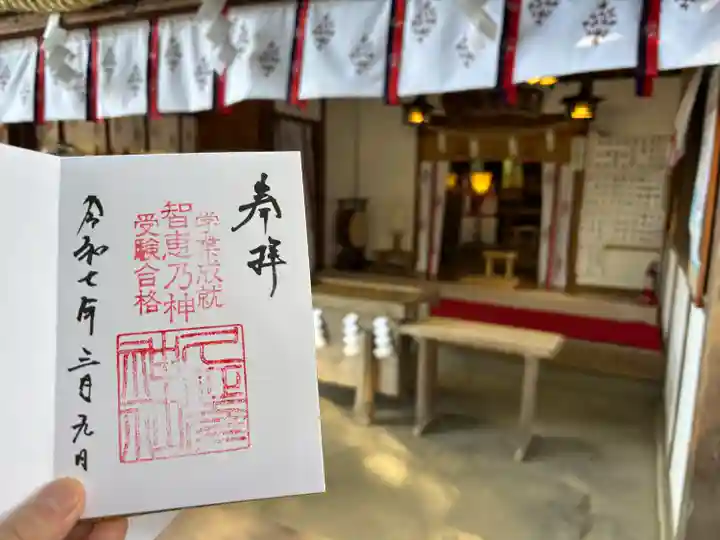 奉拝
学業成就
智恵乃神
受験合格
令和七年三月九日